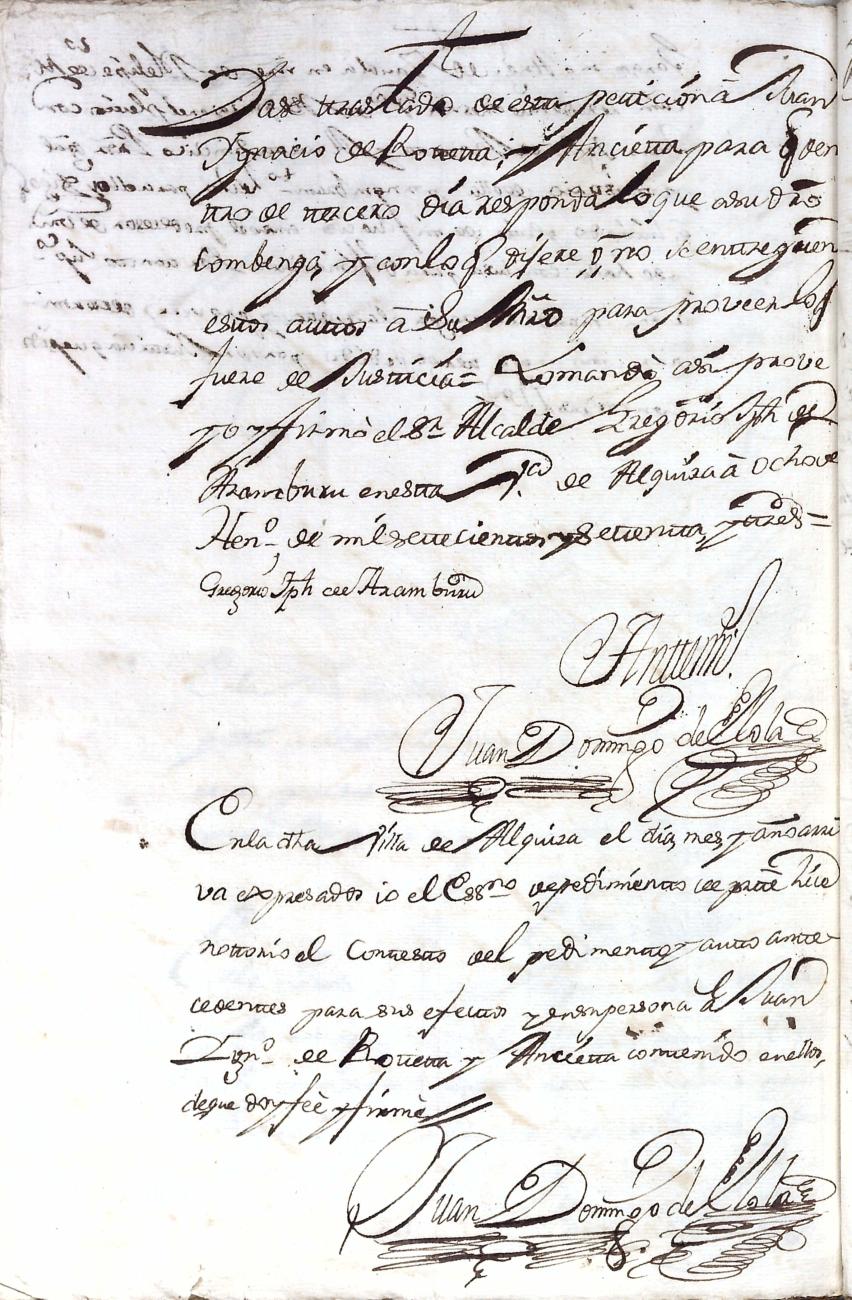 Dase traslado de esta peticion â Juan
Ygnacio de Rotetta, y Ancietta para q den
tro de tercero dia responda lo que a su dro
combenga, y con lo q dijere, ô no se entreguen
estos autos â Su Mrd para proveer lo q
fuere de Justicia= Lo mandò asi prove
yo y firmò el Sr Alcalde Gregorio Jph de
Aramburu en esta Va de Alquiza â ocho de
Henº de mil setecientos y setenta, y tres=
Gregorio Jph de Aramburu
Antemi
Juan Domingo de Olola
En la dha Villa de Alquiza el dia, mes, y año arri
va expresados io el Essno de pedimiento de parte hice
nottorio el Contesto del pedimento, y auto ante
cedentes para sus efectos y en su persona â Juan
Ignº de Rotetta y Ancietta contenido en ellos,
de que doy feè y firmè
Juan Domingo de Olola